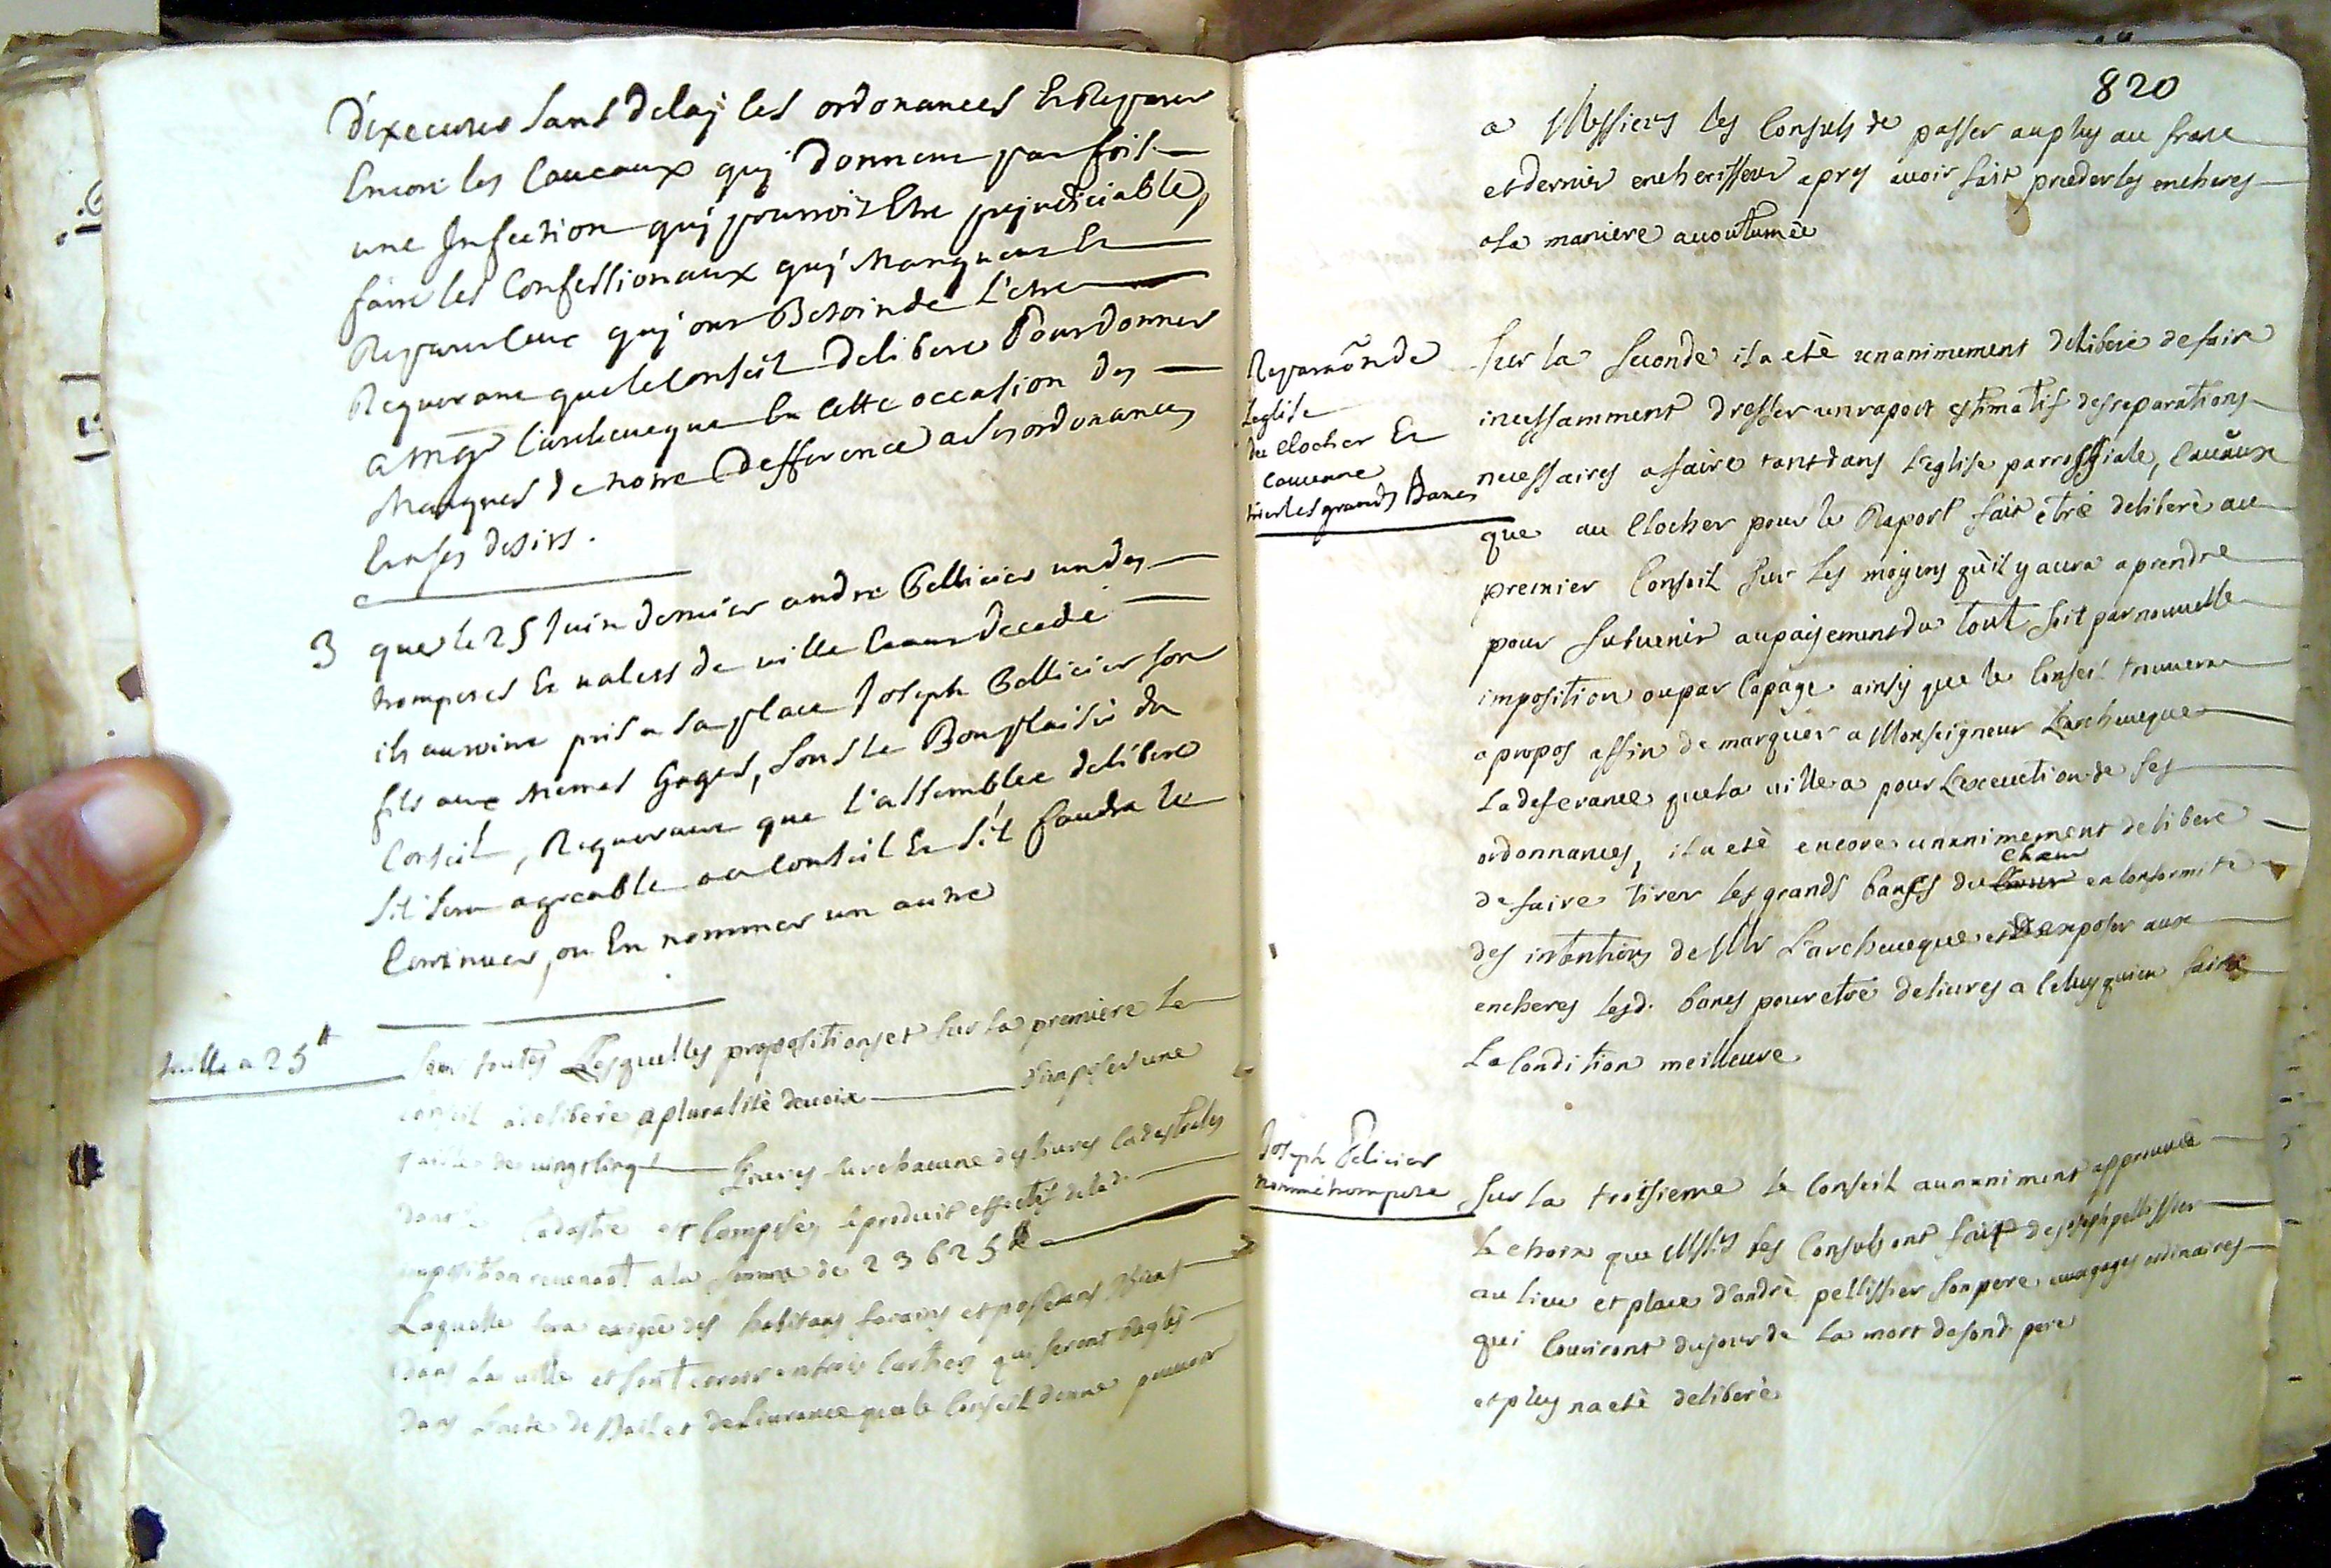 d'executer sans delaj les ordonances Et Reparer
Encore les Caveaux quj donnent par fois
une Infection quj pourroit Etre prejudiciable,
faire les Confessionaux quj manquent Et
Reparer ceux quj ont Besoin de L'etre
Requerant que le Conseil delibere Pour donner
a mgr L'archeveque En cette occasion des
Marques de notre defference a ses ordonances
Et a ses desirs.
3 que le 25 Juin dernier andre Pellicier un des
trompetes Et valets de ville Etant decedé
ils auroint pris a sa place Joseph Pellicier son
fils aux memes Gages, sous le Bon plaisir du
Conseil, Requerant que l'assemblée delibere
s'il sera agreable au Conseil Et s'il faudra le
Continuer, ou En nommer un autre
taille a 25 ₶
Sur toutes Lesquelles propositions et sur la premiere Le
conseil a delibere a pluralité de voix d'imposer une
taille de vingt cinq Livres sur chacune des livres cadastrales
dont le cadastre est Composé, le produit effectif de lad.
imposition revenant a la somme de 23625 ₶
Laquelle sera exigée des habitans forains et possedans Biens
dans La ville et son terroir en trois cartiers qui seront Reglés
dans L'acte de Bail et delivrance que le Conseil donne pouvoir
820
a Messieurs les Consuls de passer au plus au franc
et dernier encherisseur apres avoir fait proceder les encheres
a la maniere accoutumée
Reparaõn de
Leglise
du Clocher Et
Caveaux
tirer les grands Bancs
Sur la seconde il a eté unanimement deliberé de faire
incessamment dresser un raport estimatif des reparations
necessaires a faire tant dans L'eglise parroissiale, Caveaux
que au Clocher pour le Raport fait etre deliberé au
premier Conseil sur les moyens qu'il y aura a prendre
pour subvenir au paijement du tout soit par nouvelle
imposition ou par Capage ainsy que le Conseil trouvera
a propos affin de marquer a Monseigneur L'archeveque
La deferance que la ville a pour L'execution de ses
ordonnances, il a eté encore unanimement deliberé
chœur
de faire tirer les grands bancs du en conformité
des intentions de Mgr L'archeveque et D'exposer aux
encheres lesd. bancs pour etre delivres a Celuy qui en faira
La Condition meilleure
Joseph Pelicier
nommé trompete
Sur la troisieme Le Conseil a unaniment approuvé
Le choix que Mssrs les Consuls ont fait de joseph pellissier
au lieu et place d'andré pellissier son pere aux gages ordinaires
qui Couriront du jour de La mort de sond. pere
et plus na eté deliberé